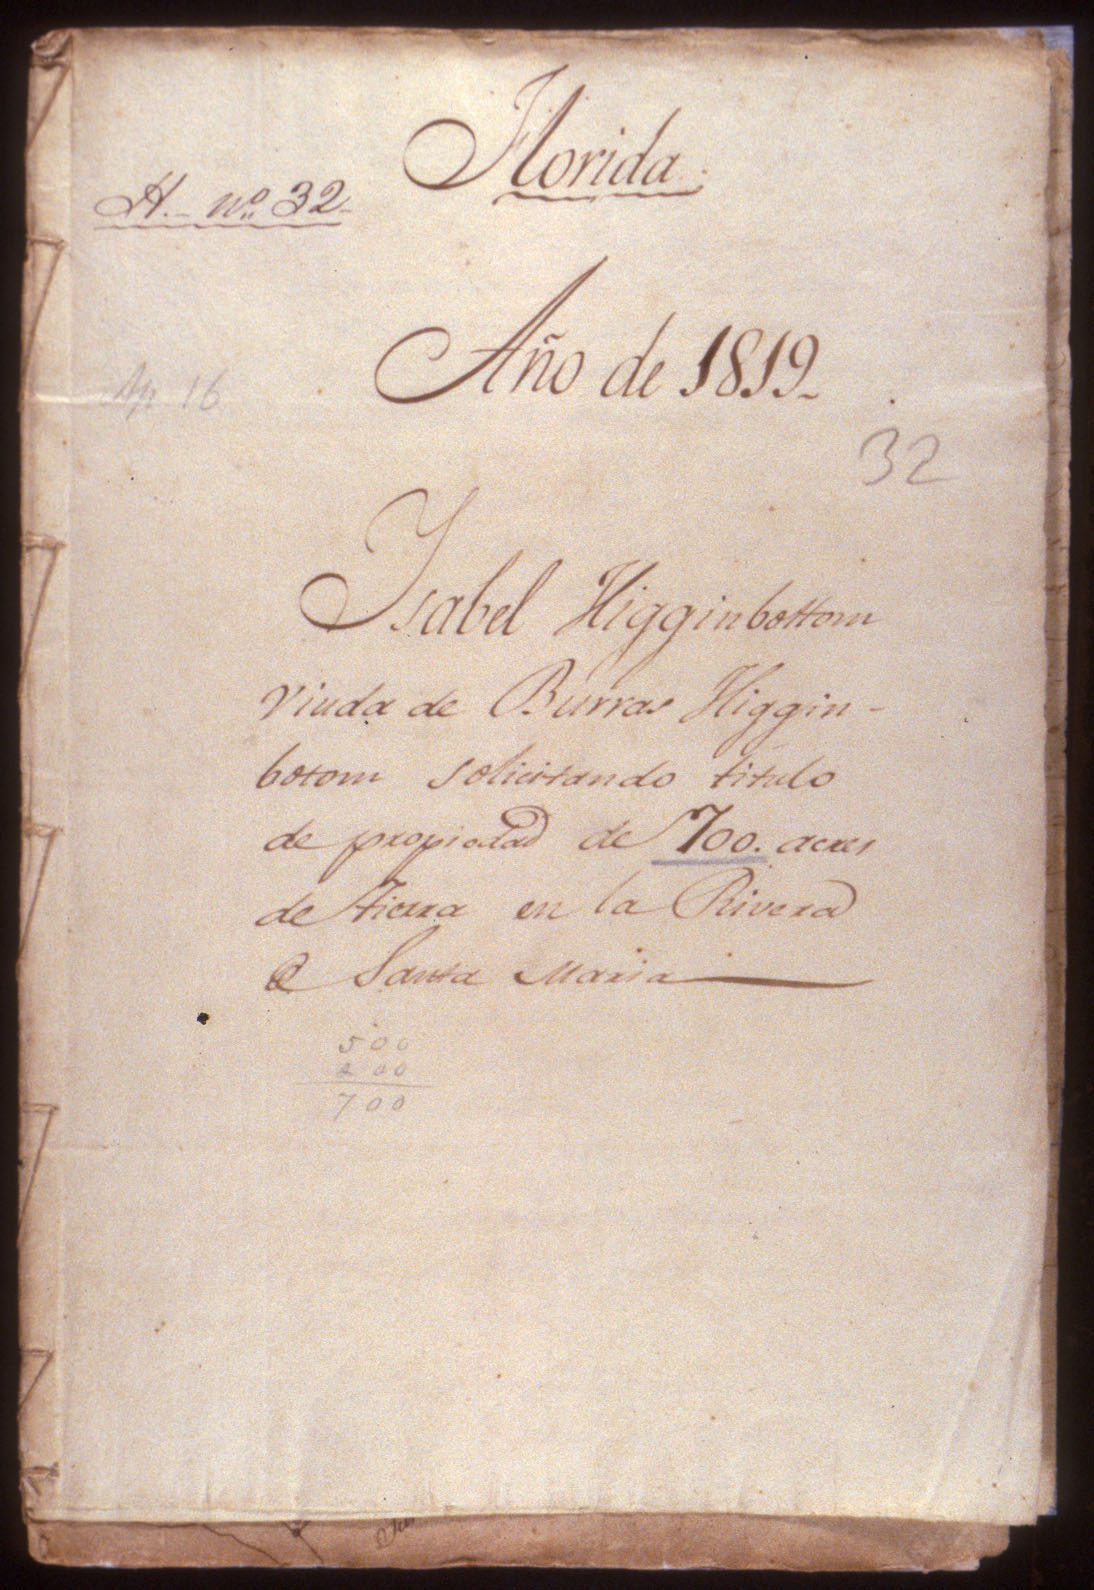 Florida
H. nº 32
Año de 1819
Ap 16
32
Isabel Higginbottom
viuda de Burras Higgin-
botom solicitando titulo
de propiedad de 700. acres
de tierra en la Rivera
de Santa Maria
500
200
700